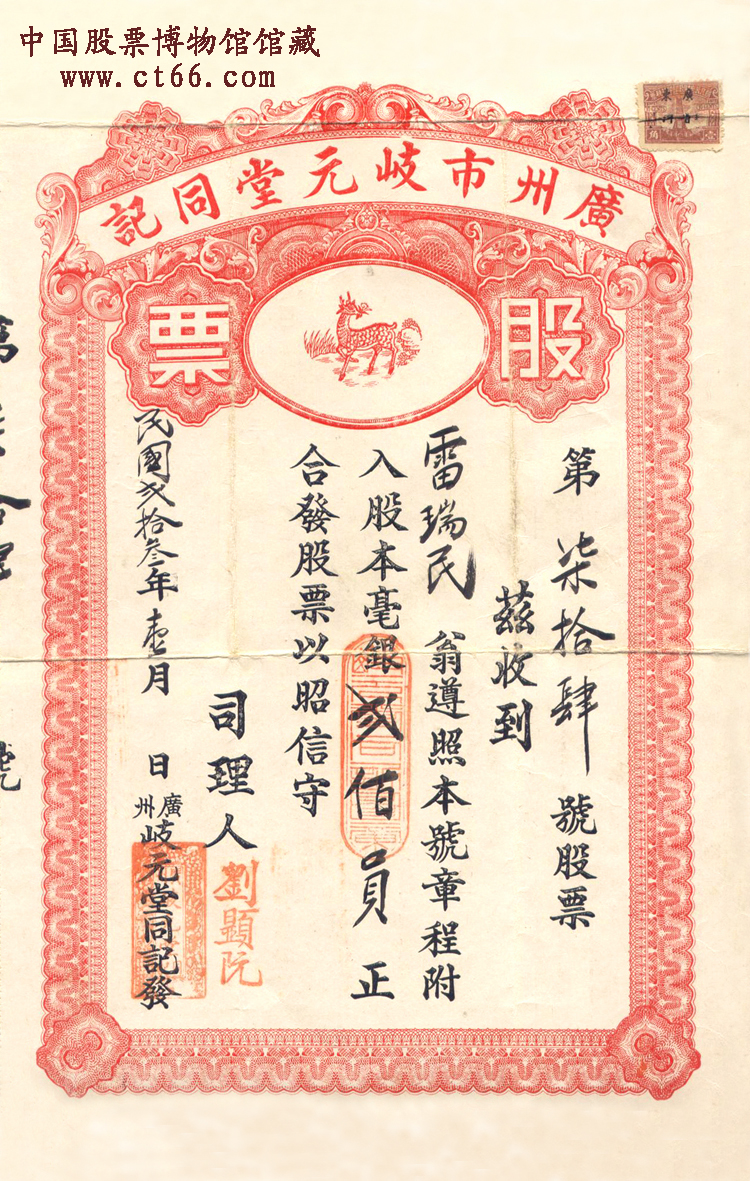 中国股票博物馆馆藏
www.ct66.com
廣東
廣州市岐元堂同記
股票
第柒拾肆號股票
茲收到
雷瑞民翁遵照本號章程附
入股本毫銀弍佰員正
合發股票以昭信守
司理人
劉顯阮
民國弍拾叁年壹月 日
廣州岐元堂同記發
號